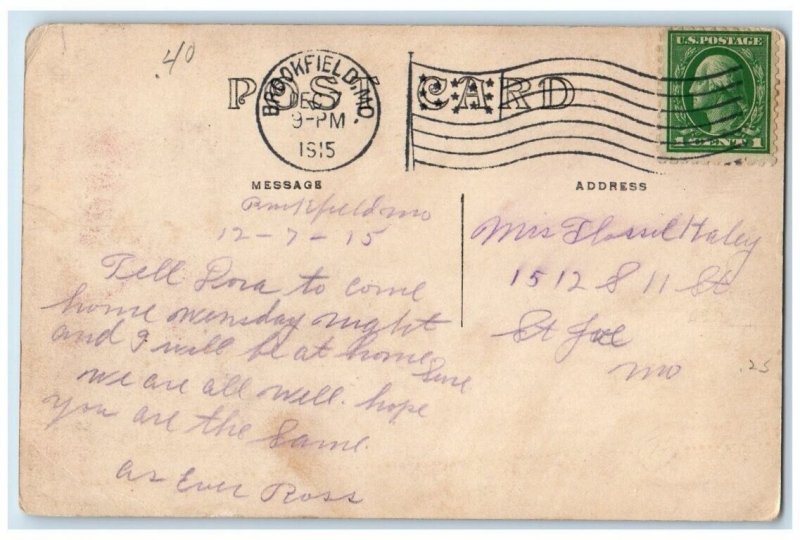 .40
POST CARD
BROOKFIELD, MO.
DEC 7
9-PM
1915
U.S. POSTAGE
1 CENTS 1
MESSAGE
ADDRESS
Brookfield Mo
12-7-15
Tell Dora to come
home wensday night
and I will be at home
Sure
we are all well. hope
you are the Same.
as Ever Ross
Mrs Flossie Haley
1512 S 11 St
St Joe
Mo
.25